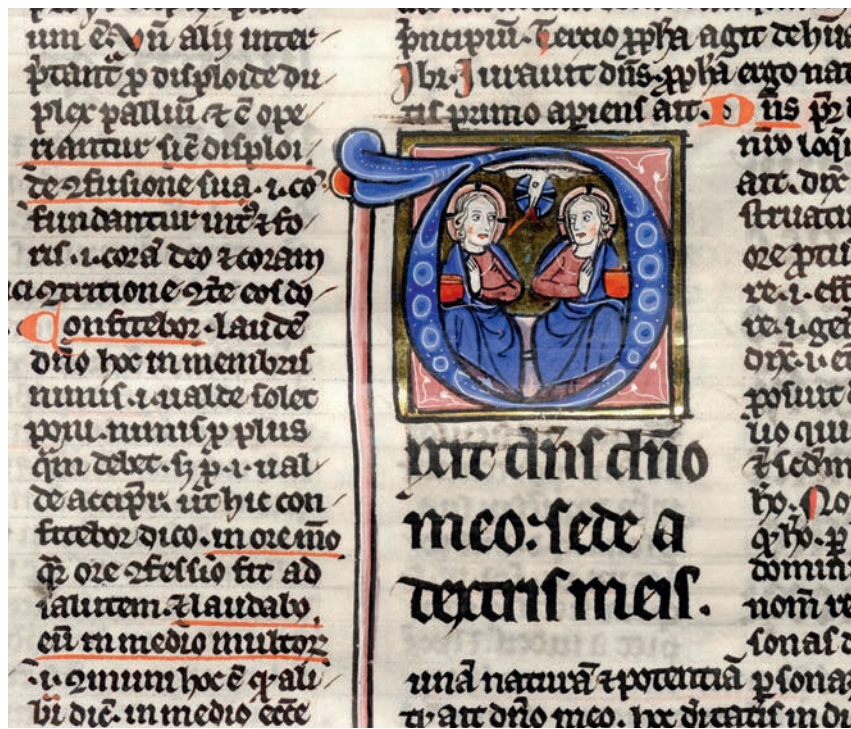 um ē. Vn̄ alij inter
p̄tant᷑ ꝓ disploide du
plex palliū ⁊ ē ope
riantur sic̄ disploi
de ꝯfusione sua .i. cō
fundantur int᷑ ⁊ fo
ris .i. corā deo ⁊ coram
ꝯtritione ꝯt̄e eos do
Confitebor . laudē
dn̄o hoc in membris
nimis .i. ualde solet
poni. nimis ꝓ plus
qm̄ debet. sꝫ ꝓ .i. ual
de accipi᷑. ut hic con
fitebor dico. in ore m̄o
qr̄ ore ꝯfessio fit ad
salutem. ⁊ laudabo
eū in medio multoꝝ
.i. ꝯmuni hoc ē ꝙ ali
bi dic̄. in medio ecc̄e
p̄ncipiū. Tercio ꝓph̄a agit de
Ibi. Iurauit dn̄s. ꝓph̄a ergo nat
tis primo apiens ait. Dn̄s pr̄
D
ixit dn̄s dn̄o
meo: sede a
dextris meis.
unā naturā ⁊ potentiā ꝑsonaꝝ
ait dn̄o meo. hoc in
loqi
ait. dix̄
struatur
ore
re .i. eff
re .i. gen
dix̄ .i.
posuit d
uo qui
⁊ scdm̄
ho. No
ꝙ ho. ꝑ
domin
nom̄ re
sonas d